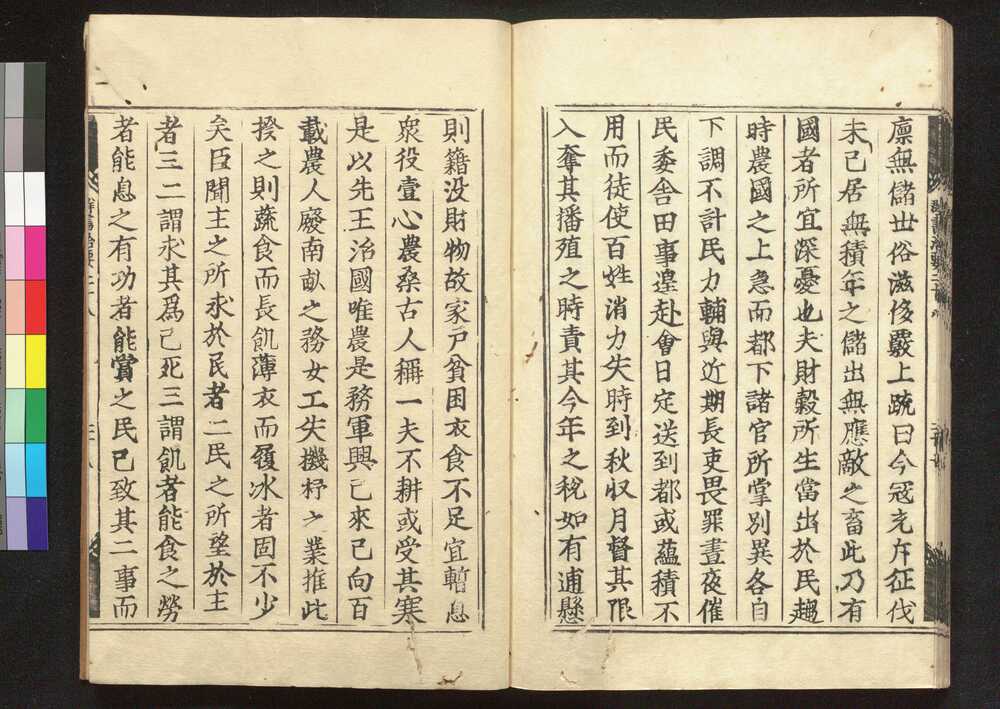 廪無儲世俗滋侈覈上疏曰今寇充斥征伐
未已居無積年之儲出無應敵之畜此乃有
國者所宜深憂也夫財穀所生當出於民趨
時農國之上急而都下諸官所掌別異各自
下調不計民力輔與近期長吏畏罪晝夜催
民委舍田事遑赴會日定送到都或蘊積不
用而徒使百姓消力失時到秋收月督其限
入奪其播殖之時責其今年之稅如有逋懸
則籍没財物故家戸貧困衣食不足宜暫息
衆役壹心農桑古人稱一夫不耕或受其寒
是以先王治國唯農是務軍興已來已向百
載農人廢南畝之務女工失機杼之業推此
揆之則蔬食而長飢薄衣而履冰者固不少
矣臣聞主之所求於民者二民之所望於主
者三二謂求其爲己死三謂飢者能食之勞
者能息之有功者能賞之民已致其二事而